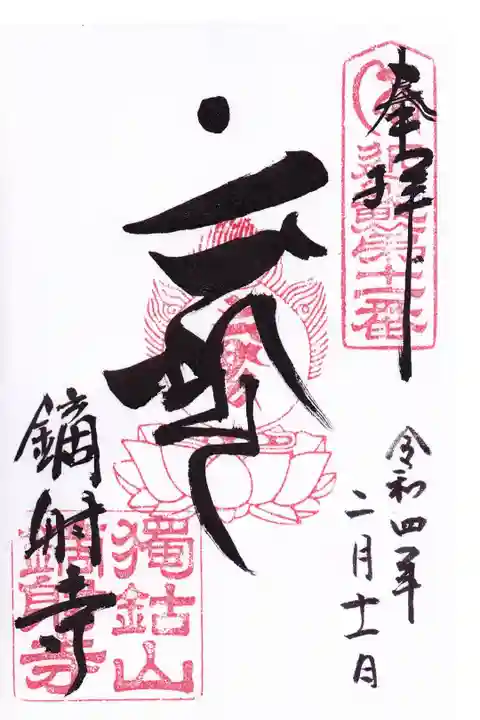 奉拝
近畿第十一番
令和四年
二月十一日
鏑射寺
獨鈷山
鏑射寺